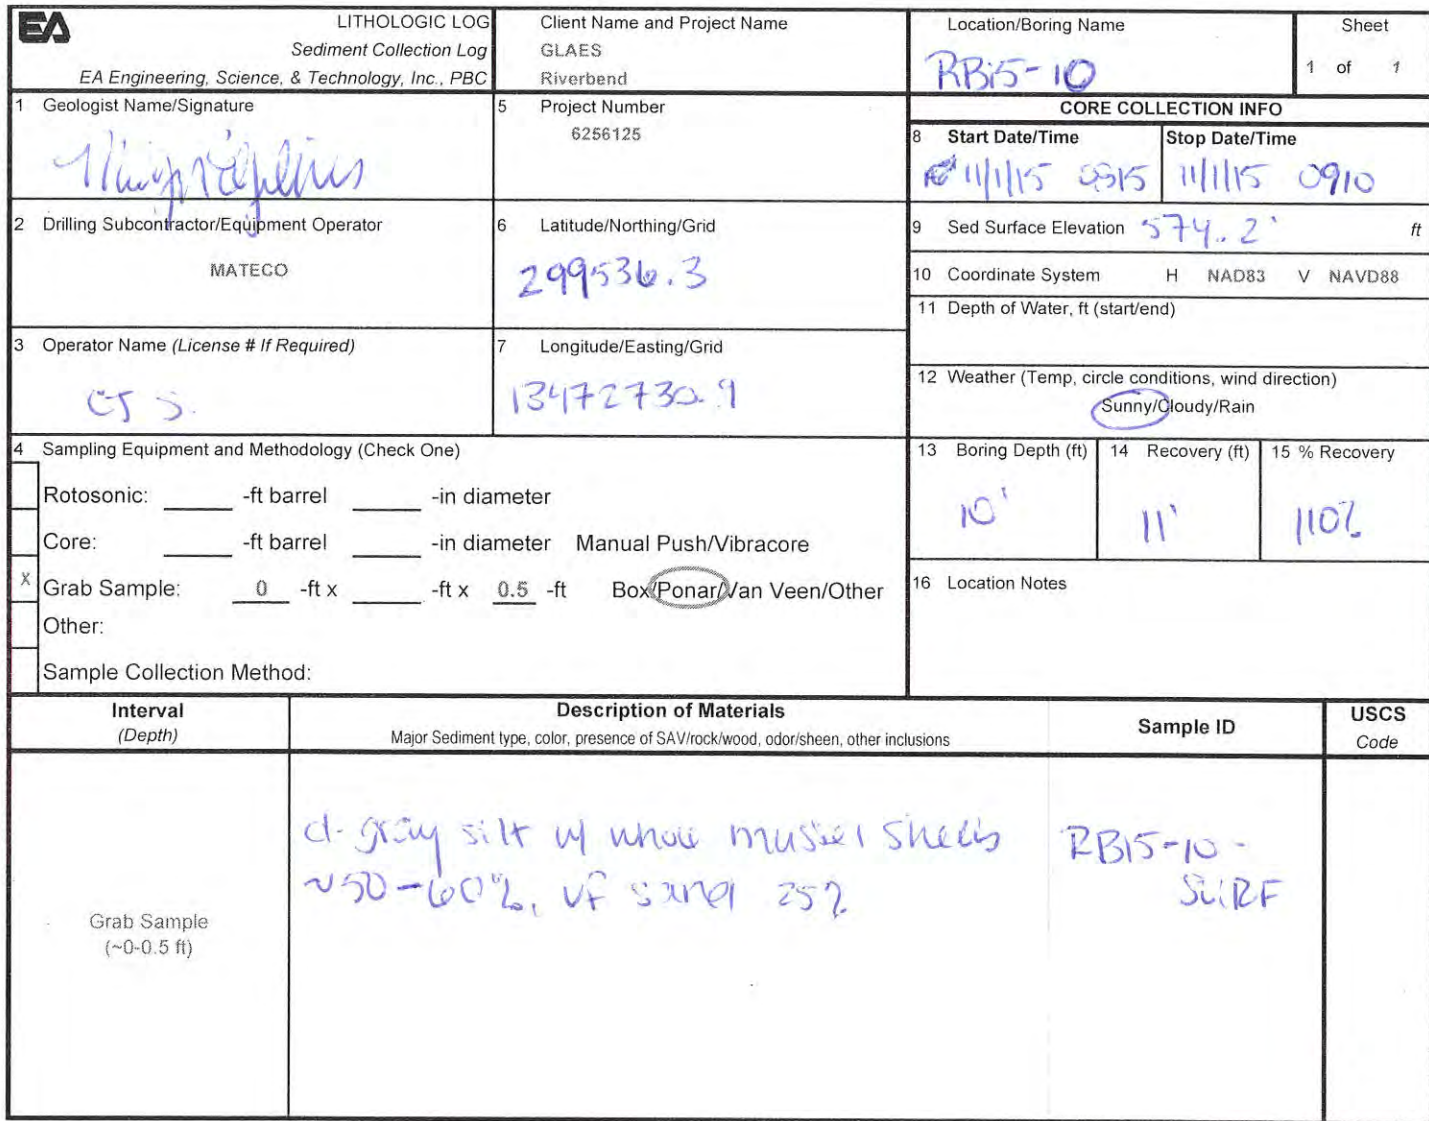 EA
LITHOLOGIC LOG
Sediment Collection Log
EA Engineering, Science, & Technology, Inc., PBC
Client Name and Project Name
GLAES
Riverbend
Location/Boring Name
RB15-10
Sheet
1 of 1
1 Geologist Name/Signature
5 Project Number
6256125
CORE COLLECTION INFO
8 Start Date/Time
11/1/15 0815
Stop Date/Time
11/1/15 0910
2 Drilling Subcontractor/Equipment Operator
MATECO
6 Latitude/Northing/Grid
299536.3
9 Sed Surface Elevation 574.2' ft
10 Coordinate System H NAD83 V NAVD88
11 Depth of Water, ft (start/end)
3 Operator Name (License # If Required)
CJ S.
7 Longitude/Easting/Grid
13472730.9
12 Weather (Temp, circle conditions, wind direction)
Sunny/Cloudy/Rain
4 Sampling Equipment and Methodology (Check One)
Rotosonic: -ft barrel -in diameter
Core: -ft barrel -in diameter Manual Push/Vibracore
X Grab Sample: 0 -ft x -ft x 0.5 -ft Box/Ponar/Van Veen/Other
Other:
Sample Collection Method:
13 Boring Depth (ft)
10'
14 Recovery (ft)
11'
15 % Recovery
110%
16 Location Notes
Interval
(Depth)
Description of Materials
Major Sediment type, color, presence of SAV/rock/wood, odor/sheen, other inclusions
Sample ID
USCS
Code
Grab Sample
(~0-0.5 ft)
d. gray silt w/ whole mussel shells
~50-60%, vf sand 25%
RB15-10-
SURF